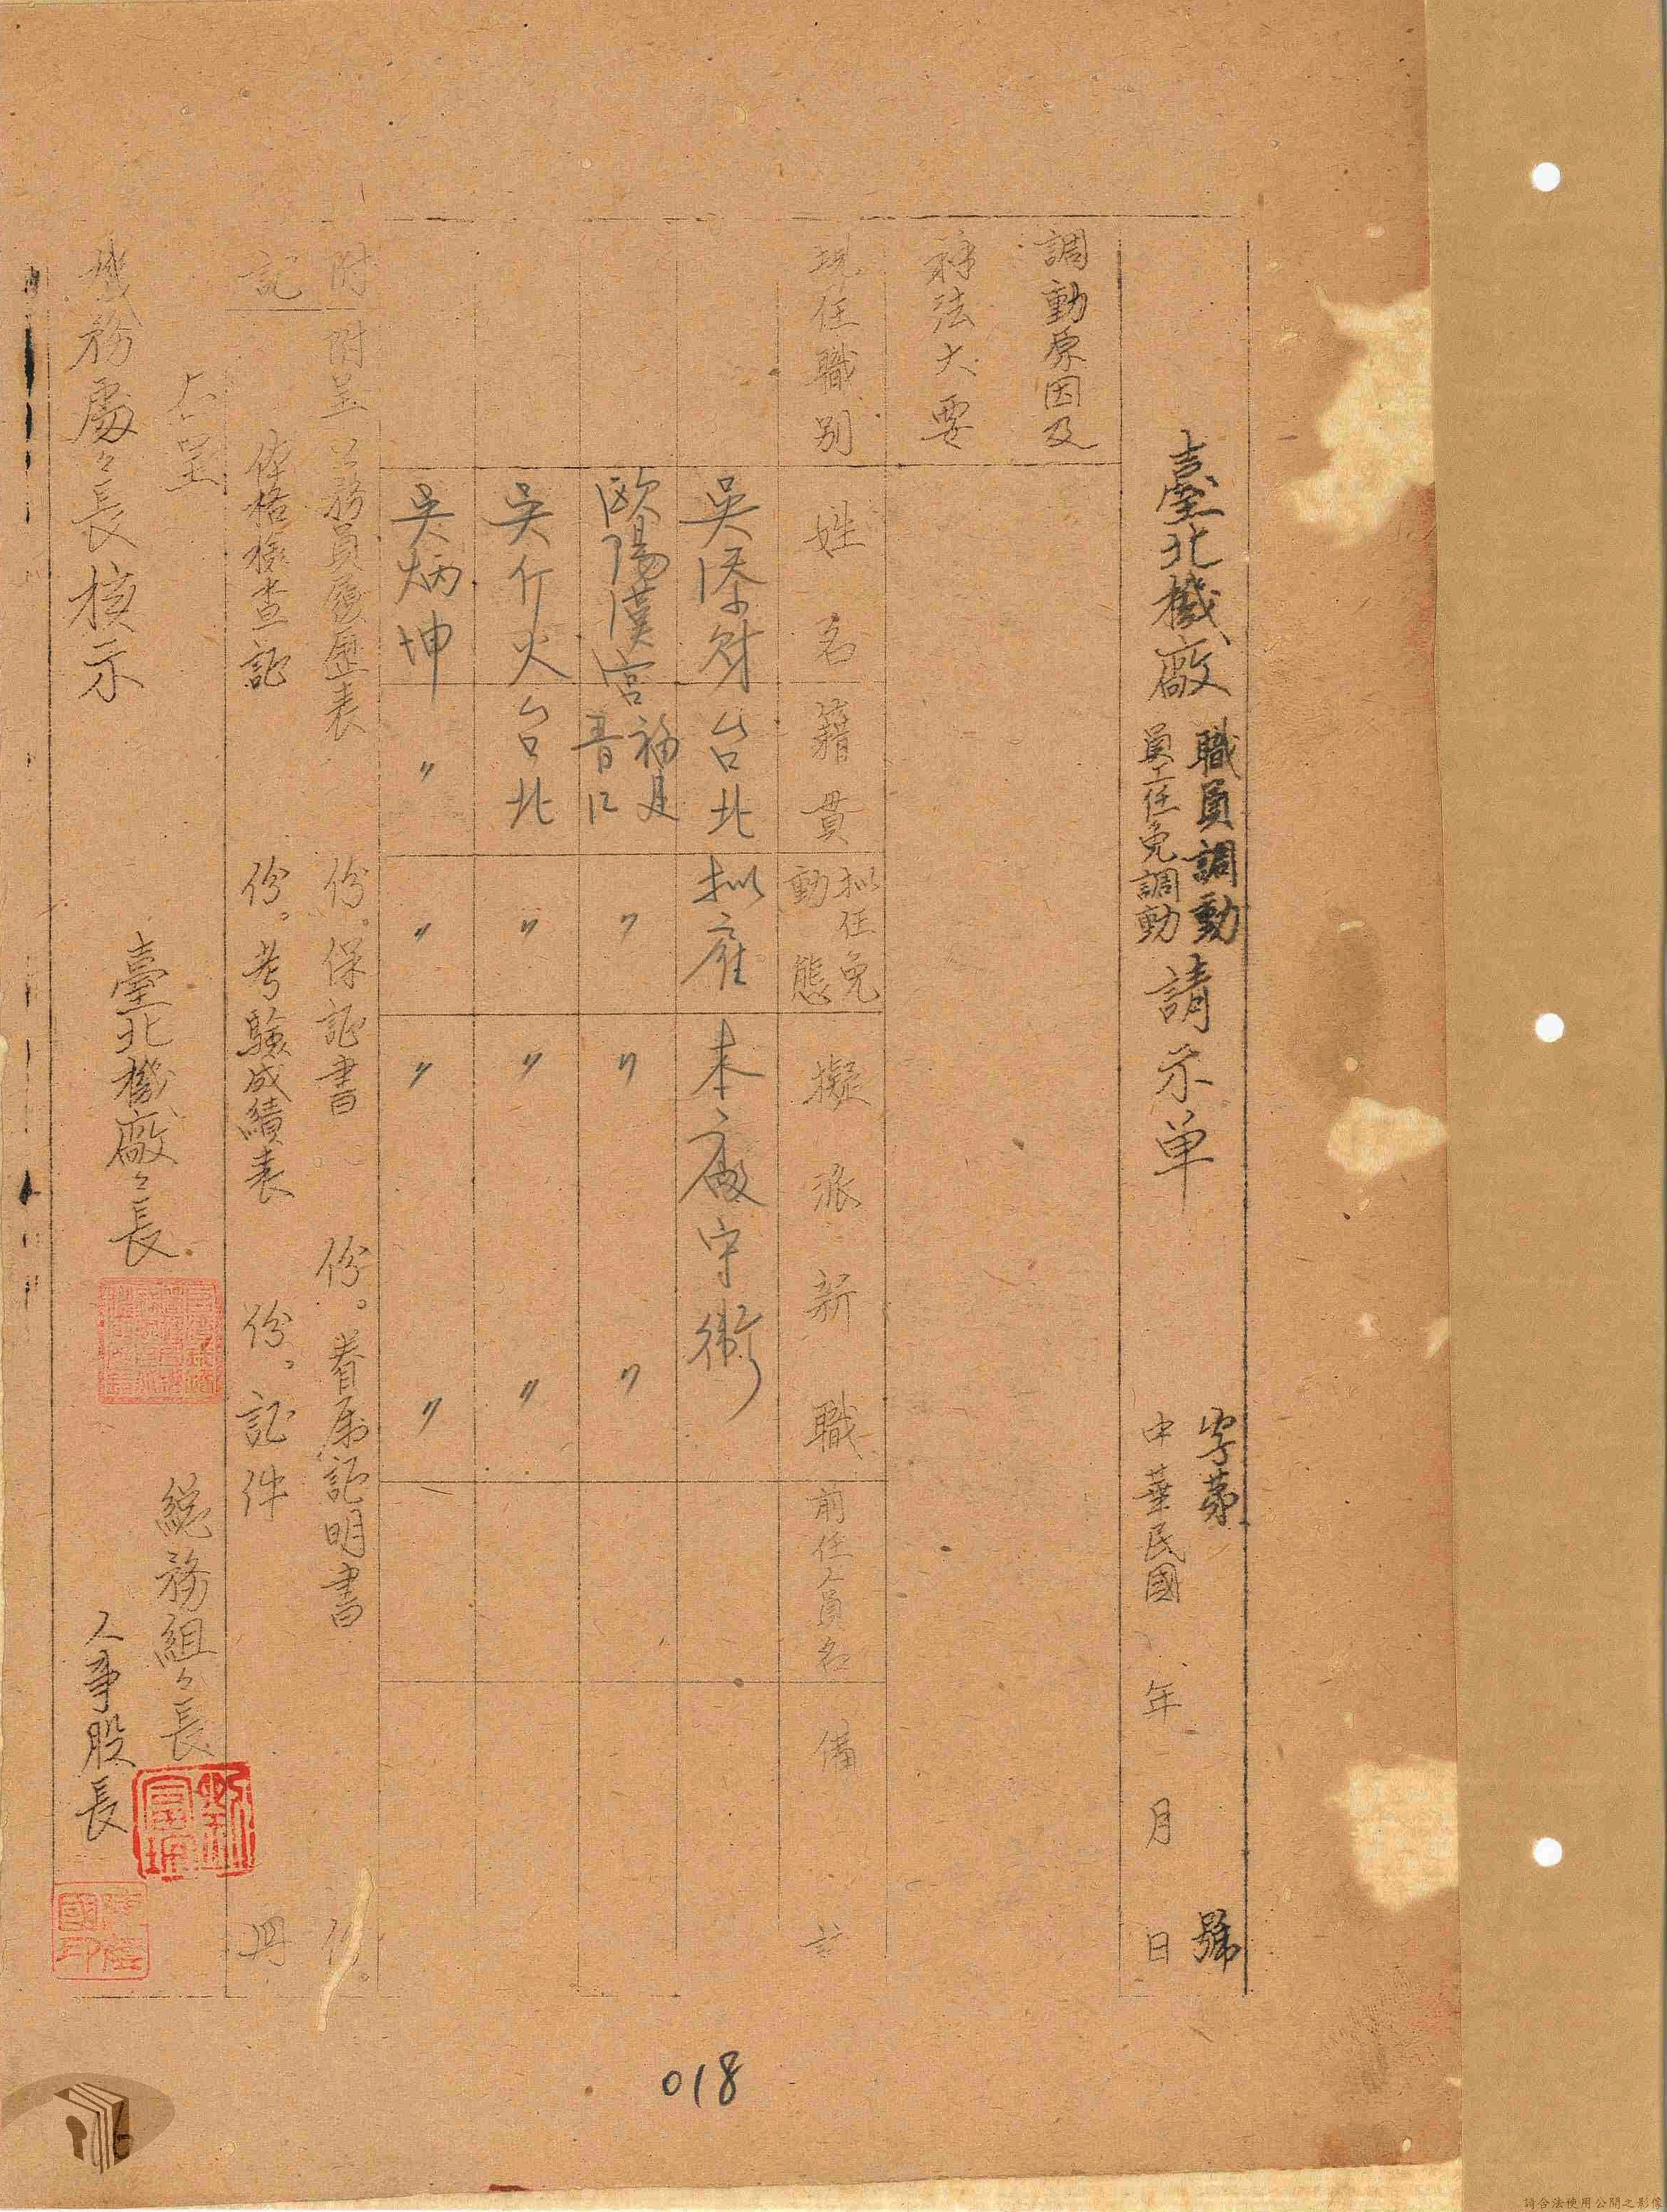 臺北機廠職員調動請示单
員工任免調動
字第 號
中華民國 年 月 日
調動原因及
辦法大要
現任職別 姓名 籍貫 拟任免動態 擬派新職 前任人員名 備註
吳添財 台北 拟雇 本廠守衛
歐陽漢宮 福建晋江 〃 〃 〃
吳介火 台北 〃 〃 〃
吳炳坤 〃 〃 〃 〃
附記
附呈公務員履歷表 份。保証書 份。眷屬証明書 份。
体格檢查証 份。考驗成績表 份。証件
右呈
機務處々長核示
臺北機廠々長
総務組々長
人事股長
018
請合法使用公開之影像